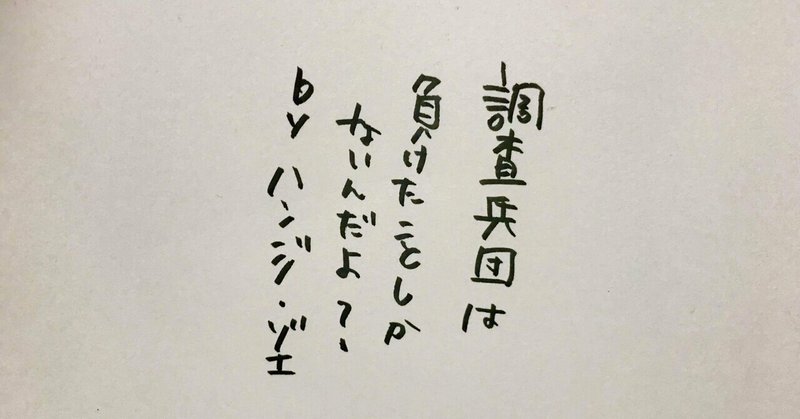 調査兵団は
負けたことしか
ないんだよ?
by ハンジ・ゾエ